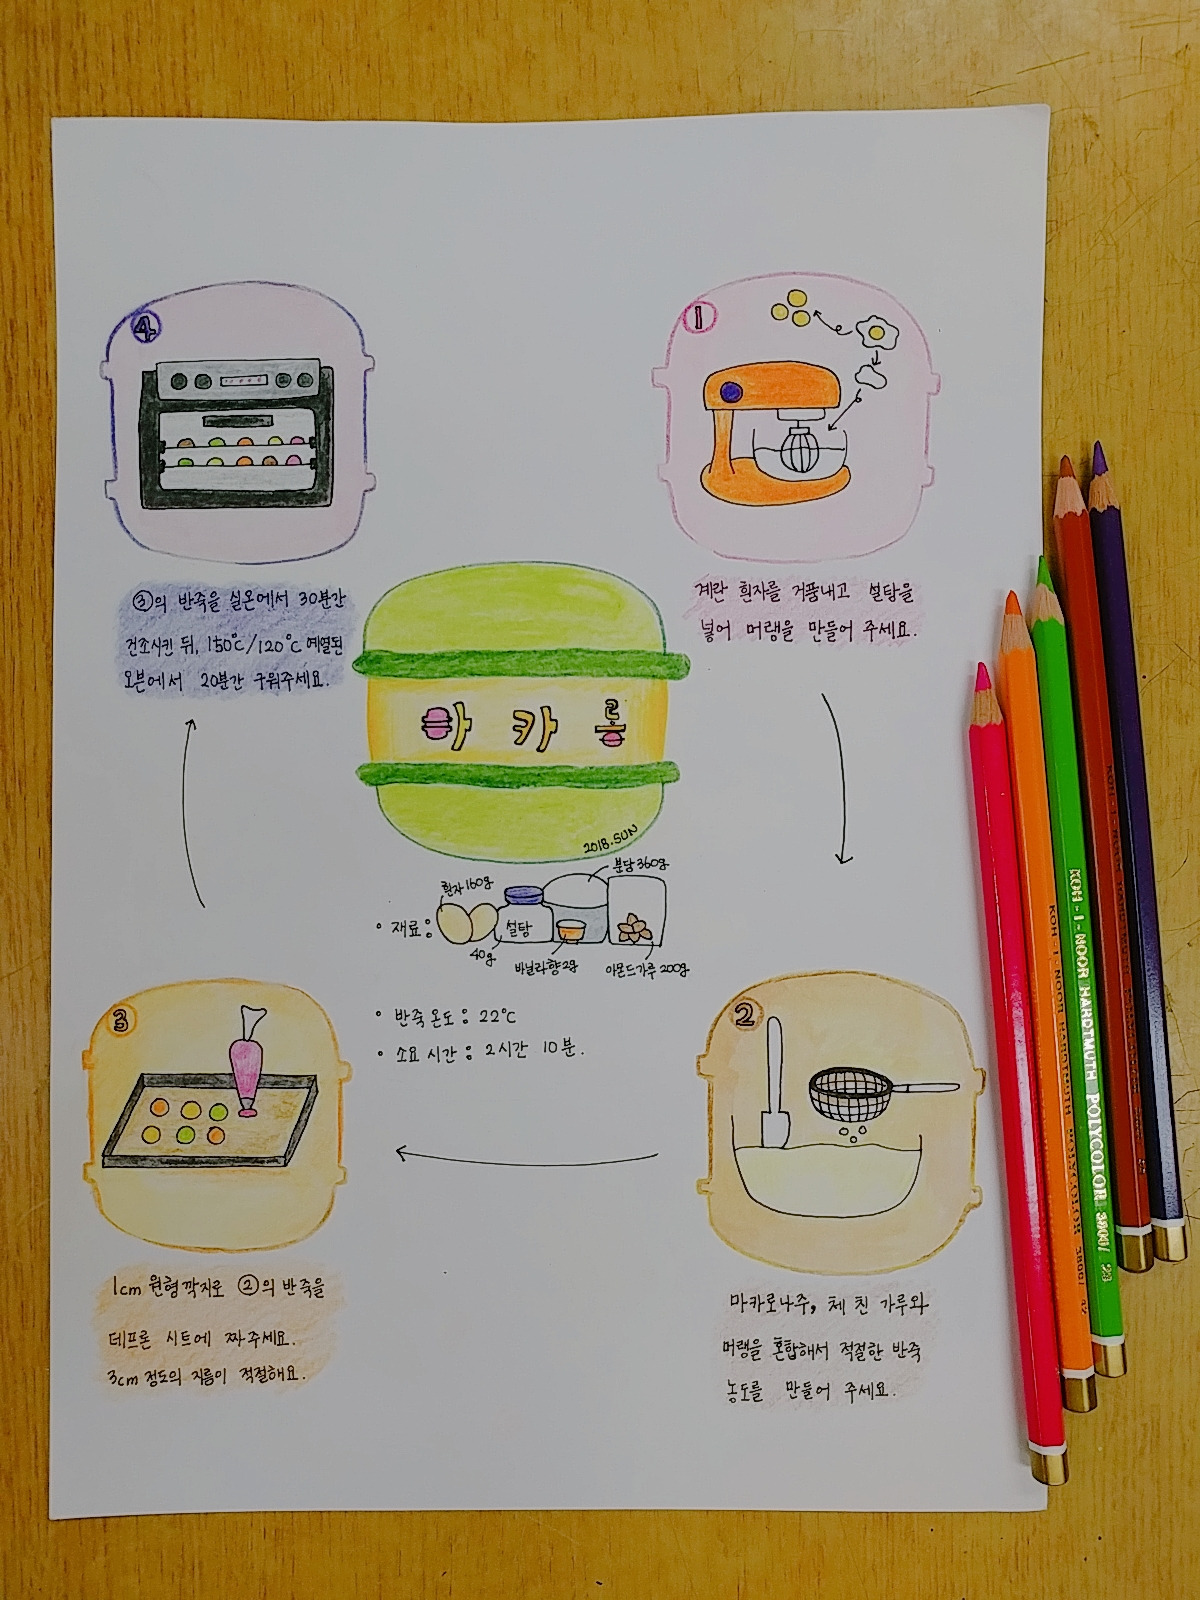 마카롱
2018.SUN
• 재료 :
흰자 160g
설탕
40g
분당 360g
바닐라향 2g
아몬드가루 200g
• 반죽 온도 : 22°C
• 소요 시간 : 2시간 10분.
1
계란 흰자를 거품내고 설탕을
넣어 머랭을 만들어 주세요.
2
마카로나주, 체 친 가루와
머랭을 혼합해서 적절한 반죽
농도를 만들어 주세요.
3
1cm 원형 깍지로 ②의 반죽을
데프론 시트에 짜주세요.
3cm 정도의 지름이 적절해요.
4
③의 반죽을 실온에서 30분간
건조시킨 뒤, 150°C/120°C 예열된
오븐에서 20분간 구워주세요.
KOH-I-NOOR HARDTMUTH POLYCOLOR 3800/ 23
KOH-I-NOOR HARDTMUTH POLYCOLOR 3800/